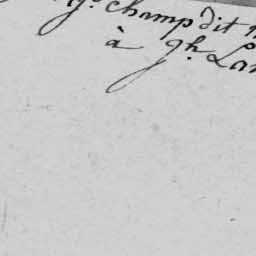 champ dit
à gh. Lan